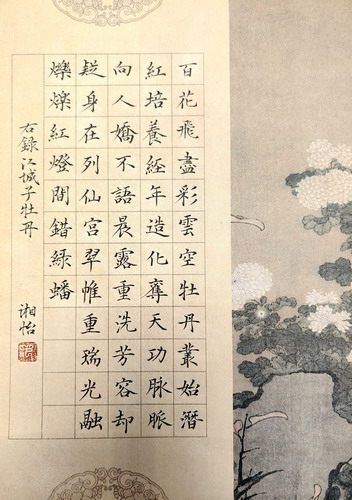 百花飛盡彩雲空牡丹叢始潛
紅培養經年造化奪天功脉脈
向人嬌不語晨露重洗芳容却
疑身在列仙宮翠帷重瑞光融
爍爍紅燈間錯綠蟠
右錄江城子牡丹 湘怡